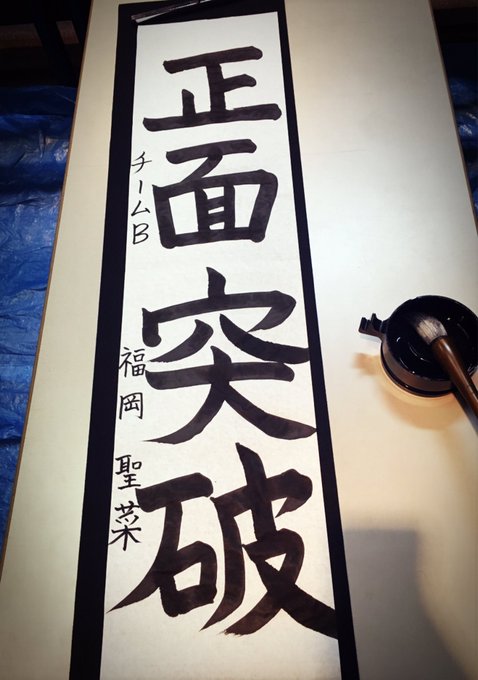 正面突破
チームB 福岡 聖菜